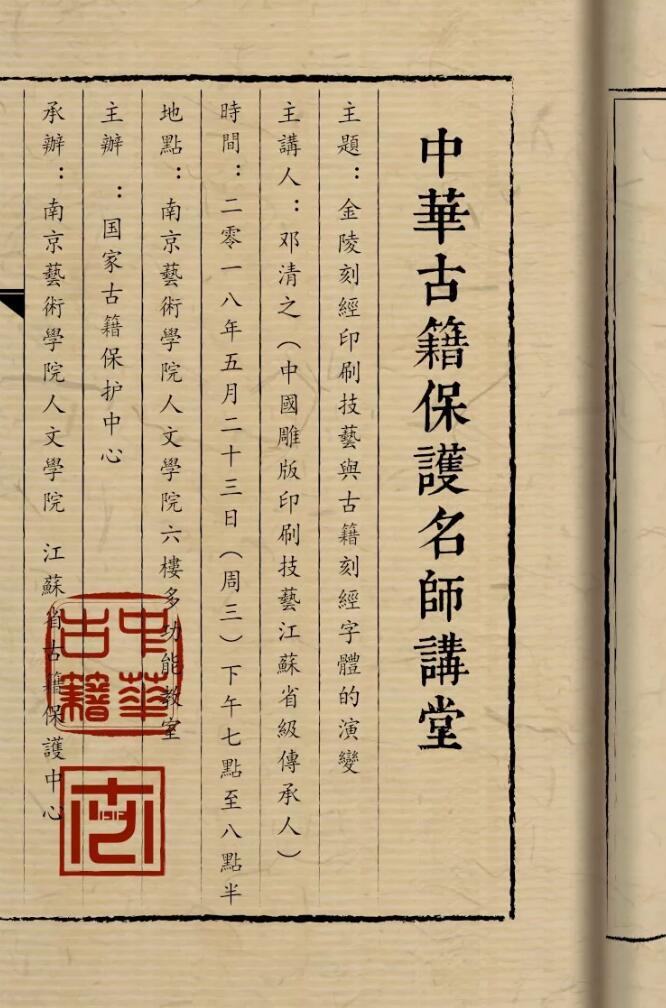 中華古籍保護名師講堂
主題：金陵刻經印刷技藝與古籍刻經字體的演變
主講人：邓清之（中國雕版印刷技藝江蘇省級傳承人）
時間：二零一八年五月二十三日（周三）下午七點至八點半
地點：南京藝術學院人文學院六樓多功能教室
主辦：国家古籍保护中心
承辦：南京藝術學院人文學院 江蘇省古籍保護中心
中華古籍
1912